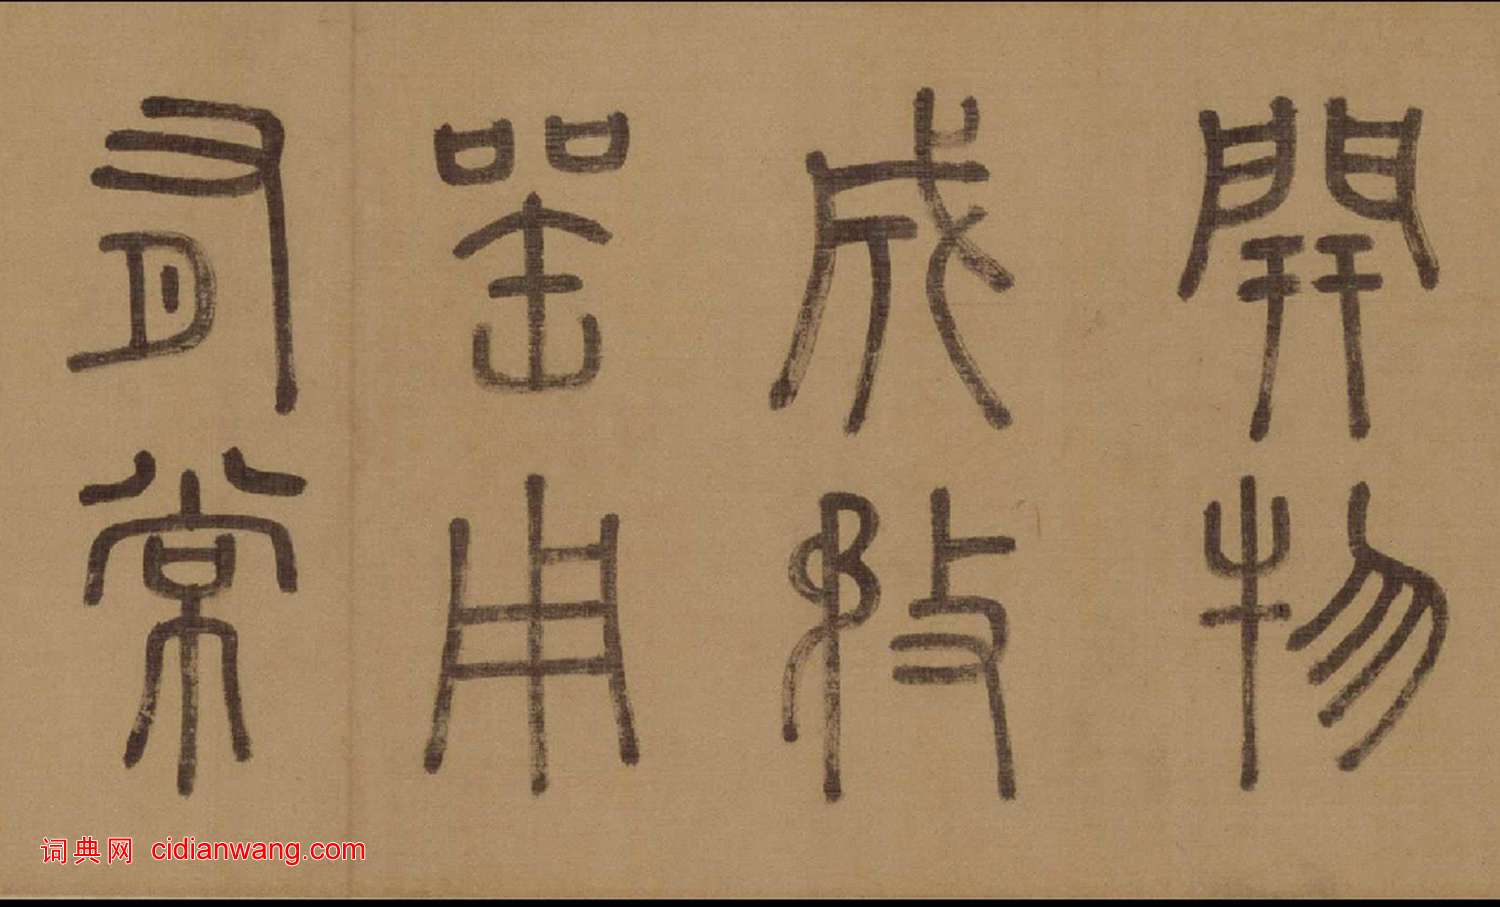 開物
成務
器用
有常
词典网 cidianwang.com